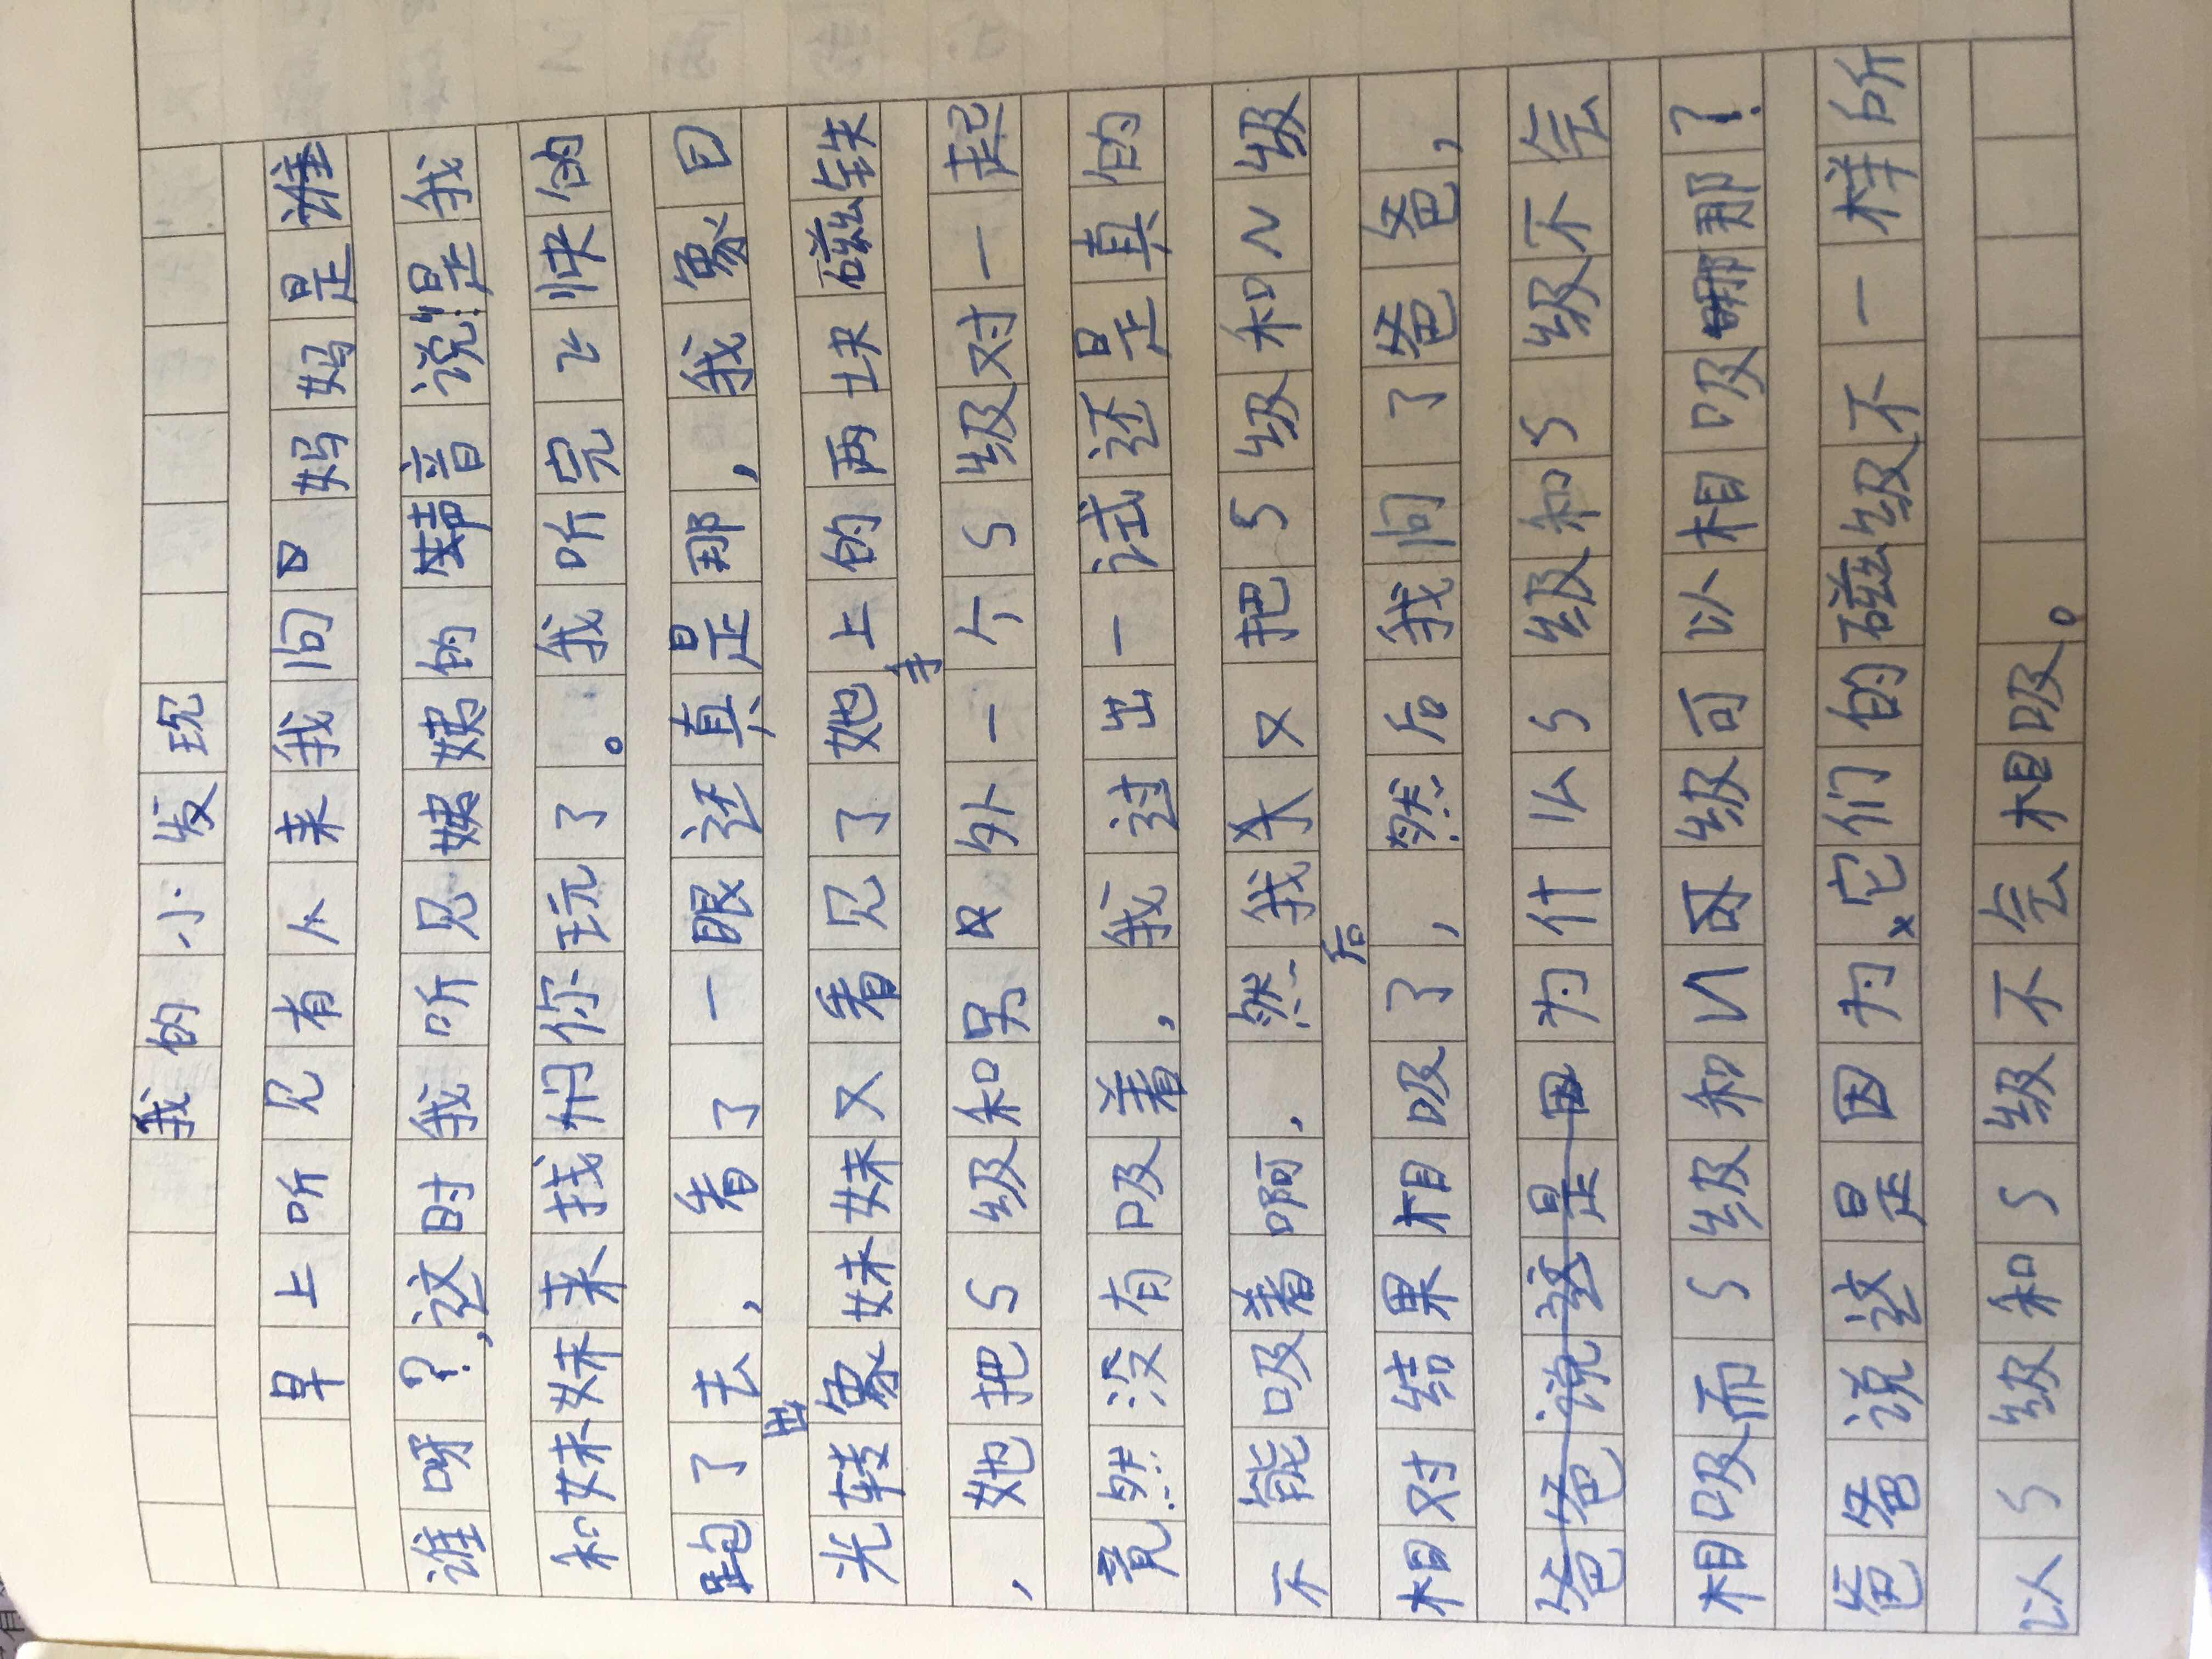 我的小发现
早上听见有人来我问口妈妈是谁
谁呀?,这时我听见姨姨的声音说:“是我
和妹妹来找你们玩了。我听完飞快的
跑了去,看了一眼还真是那,我象目
光转象妹妹又看见了她手上的两块磁铁
,她把S级和另外一个S级对一起
竟然没有吸着,我过出一试还是真的
不能吸着啊.然后我又把S级和N级
相对结果相吸了,然后我问了爸爸,
爸爸说这是因为什么S级和S级不会
相吸而S级和N级可以相吸哪那?
爸爸说这是因为,它们的磁级不一样所
以S级和S级不会相吸。